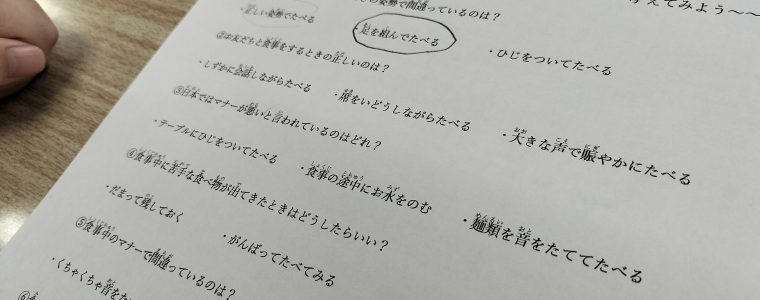 えてみよう～～
の姿勢で間違っているのは？
・正しい姿勢でたべる
足を組んでたべる
・ひじをついてたべる
②お友だちと食事をするときの正しいのは？
・しずかに会話しながらたべる
・席をいどうしながらたべる
・大きな声で賑やかにたべる
③日本ではマナーが悪いと言われているのはどれ？
・テーブルにひじをついてたべる
・食事の途中にお水をのむ
・麺類を音をたててたべる
④食事中に苦手な食べ物が出てきたときはどうしたらいい？
・だまって残しておく
・がんばってたべてみる
⑤食事中のマナーで間違っているのは？
・くちゃくちゃ音をた
⑥